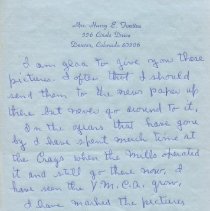 Mrs. Harry E.
Denver, Colorado 80206
I am glad to give you these
pictures. I often that I should
send them to the news paper up
there but never got around to it.
In the years that have gone
by I have spent much time at
the Crags when the Mills operated
it and still go there now. I
have seen the Y M.C.A. grow,
I have marked the pictures